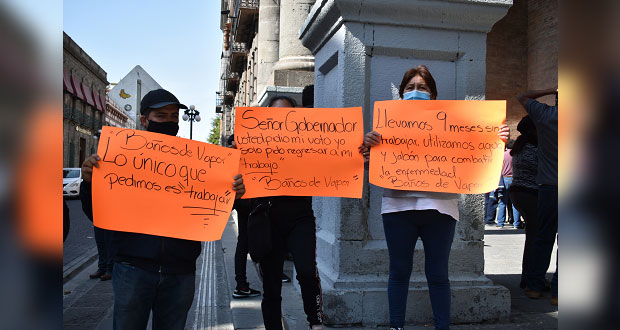 "Baños de Vapor"
Lo único que
pedimos es "trabajar"
Señor Gobernador
Usted pidio mi voto yo
solo pido regresar a mi
trabajo"
"Baños de Vapor"
Llevamos 9 meses sin
trabajar, utilizamos agua
y jabón para combatir
la enfermedad
Baños de Vapor